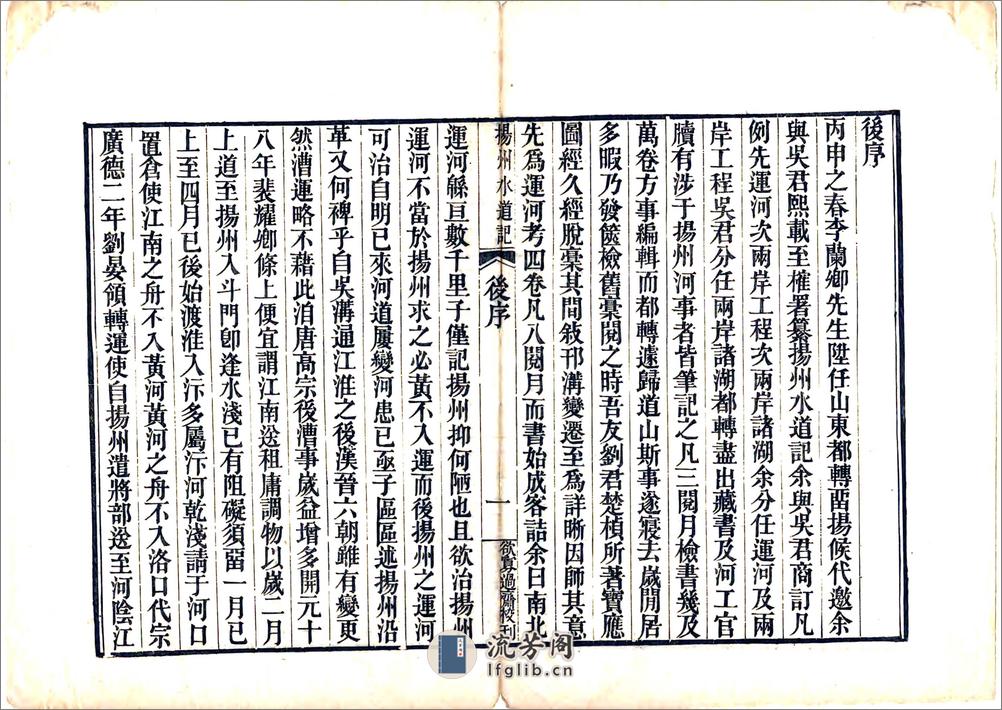 後序
丙申之春李蘭卿先生陞任山東都轉畱揚候代邀余
與吳君熙載至榷署纂揚州水道記余與吳君商訂凡
例先運河次兩岸工程次兩岸諸湖余分任運河及兩
岸工程吳君分任兩岸諸湖都轉盡出藏書及河工官
牘有涉于揚州河事者皆筆記之凡三閱月檢書幾及
萬卷方事編輯而都轉遽歸道山斯事遂寢去歲閒居
多暇乃發篋檢舊稾閱之時吾友劉君楚楨所著寶應
圖經久經脫稾其間敘邗溝變遷至爲詳晰因師其意
先爲運河考四卷凡八閱月而書始成客詰余曰南北
揚州水道記
後序
一
欲寡過齋校刊
運河緜亘數千里子僅記揚州抑何陋也且欲治揚州
運河不當於揚州求之必黃不入運而後揚州之運河
可治自明已來河道屢變河患已亟子區區述揚州沿
革又何裨乎自吳溝通江淮之後漢晉六朝雖有變更
然漕運略不藉此洎唐高宗後漕事歲益增多開元十
八年裴耀卿條上便宜謂江南送租庸調物以歲二月
上道至揚州入斗門卽逢水淺已有阻礙須畱一月已
上至四月已後始渡淮入汴多屬汴河乾淺請于河口
置倉使江南之舟不入黃河黃河之舟不入洛口代宗
廣德二年劉晏領轉運使自揚州遣將部送至河陰江
流芳阁
lfglib.cn